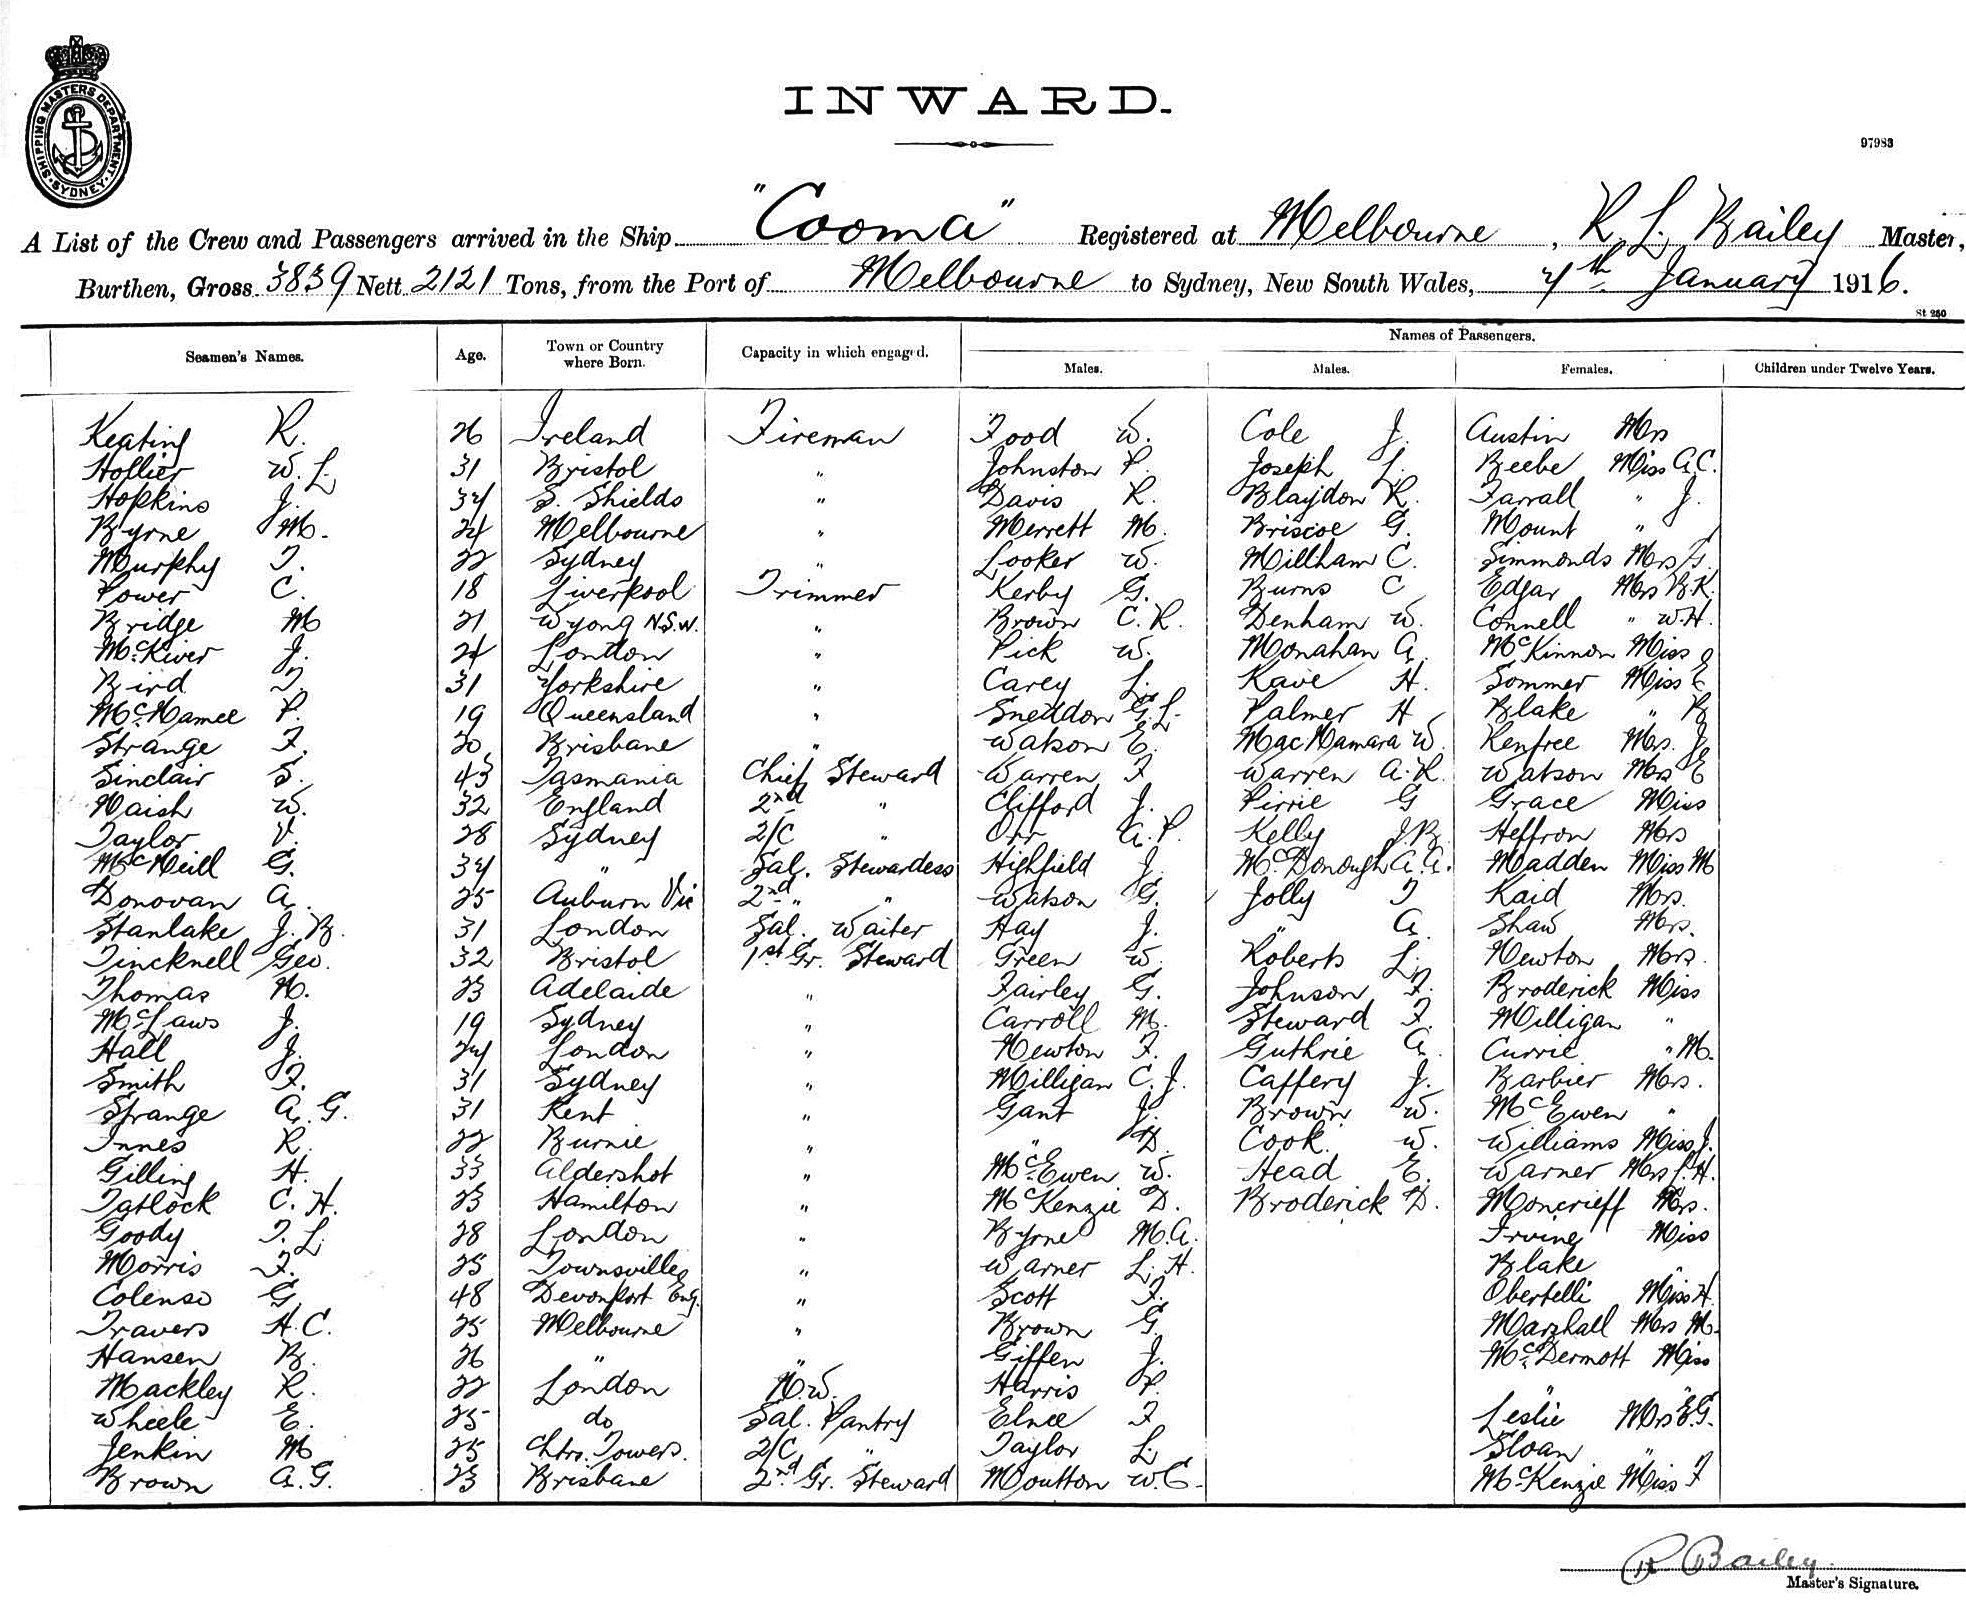 SHIPPING MASTERS DEPARTMENT. SYDNEY.
INWARD.
97983
A List of the Crew and Passengers arrived in the Ship "Cooma" Registered at Melbourne, R. L. Bailey Master,
Burthen, Gross 3839 Nett 2121 Tons, from the Port of Melbourne to Sydney, New South Wales, 4th January 1916.
St 250
Names of Passengers.
Seamen's Names. Age. Town or Country where Born. Capacity in which engaged. Males. Males. Females. Children under Twelve Years.
Keating R. 26 Ireland Fireman Food W. Cole J. Austin Mrs
Hollier W. L. 31 Bristol " Johnston P. Joseph L. Beebe Miss A.C.
Hopkins J. 34 S. Shields " Davis R. Blaydon R. Farrall " J.
Byrne M. 24 Melbourne " Merrett M. Briscoe G. Mount "
Murphy T. 22 Sydney " Looker W. Millham C. Simmonds Mrs G.
Power C. 18 Liverpool Trimmer Kerby G. Burns C Edgar Mrs B.K.
Bridge M 21 Wyong N.S.W. " Brown C. R. Denham W. Connell " W.H.
McKiver J. 24 London " Pick W. Monahan A. McKinnon Miss
Bird T. 31 Yorkshire " Carey L. Kave H. Sommer Miss E
McNamee P. 19 Queensland " Sneddon G.L. Palmer H Blake " B
Strange F. 20 Brisbane " Watson E. MacNamara W. Renfree Mrs. J.
Sinclair S. 43 Tasmania Chief Steward Warren F Warren A.R. Watson Mrs E
Naish W. 32 England 2nd " Clifford J. Pirrie G Grace Miss
Taylor V. 28 Sydney 2/C " Orr A.P. Kelly J B Heffron Mrs
McNeill G. 34 " Sal. Stewardess Highfield J. McDonough A.A. Madden Miss M
Donovan A. 25 Auburn Vic 2nd " " Watson G. Jolly T Kaid Mrs.
Stanlake J. B. 31 London Sal. Waiter Hay J. " A. Shaw Mrs.
Tincknell Geo. 32 Bristol 1st Gr. Steward Green W. Roberts L. Newton Mrs.
Thomas N. 23 Adelaide " Fairley G. Johnson F. Broderick Miss
McLaws J. 19 Sydney " Carroll M. Steward F. Milligan "
Hall J. 24 London " Newton F. Guthrie A. Currie " M.
Smith F. 31 Sydney " Milligan C. J. Caffery J. Barbier Mrs.
Strange A. G. 31 Kent " Gant J. Brown W. McEwen "
Innes R. 22 Burnie " " D. Cook W. Williams Miss J.
Gilling H. 33 Aldershot " McEwen W. Head E. Warner Mrs L.H.
Tatlock C. H. 23 Hamilton " McKenzie D. Broderick D. Moncrieff Mrs.
Goody T. L. 28 London " Byrne M.A. Irvine Miss
Morris F. 25 Townsville " Warner L. H. Blake "
Colenso G 48 Devonport Eng. " Scott F. Obertelli Miss H.
Travers H.C. 25 Melbourne " Brown G. Marshall Mrs M.
Hansen B. 26 " " Giffen J. McDermott Miss
Mackley R. 22 London N.W. Harris P. " "
Wheele E. 25 do Sal. Pantry Elnee F Leslie Mrs E.G.
Jenkin M 25 Chtrs. Towers. 2/C " Taylor L. Sloan "
Brown A.G. 23 Brisbane 2nd Gr. Steward Moulton W.C. McKenzie Miss F
R Bailey.
Master's Signature.